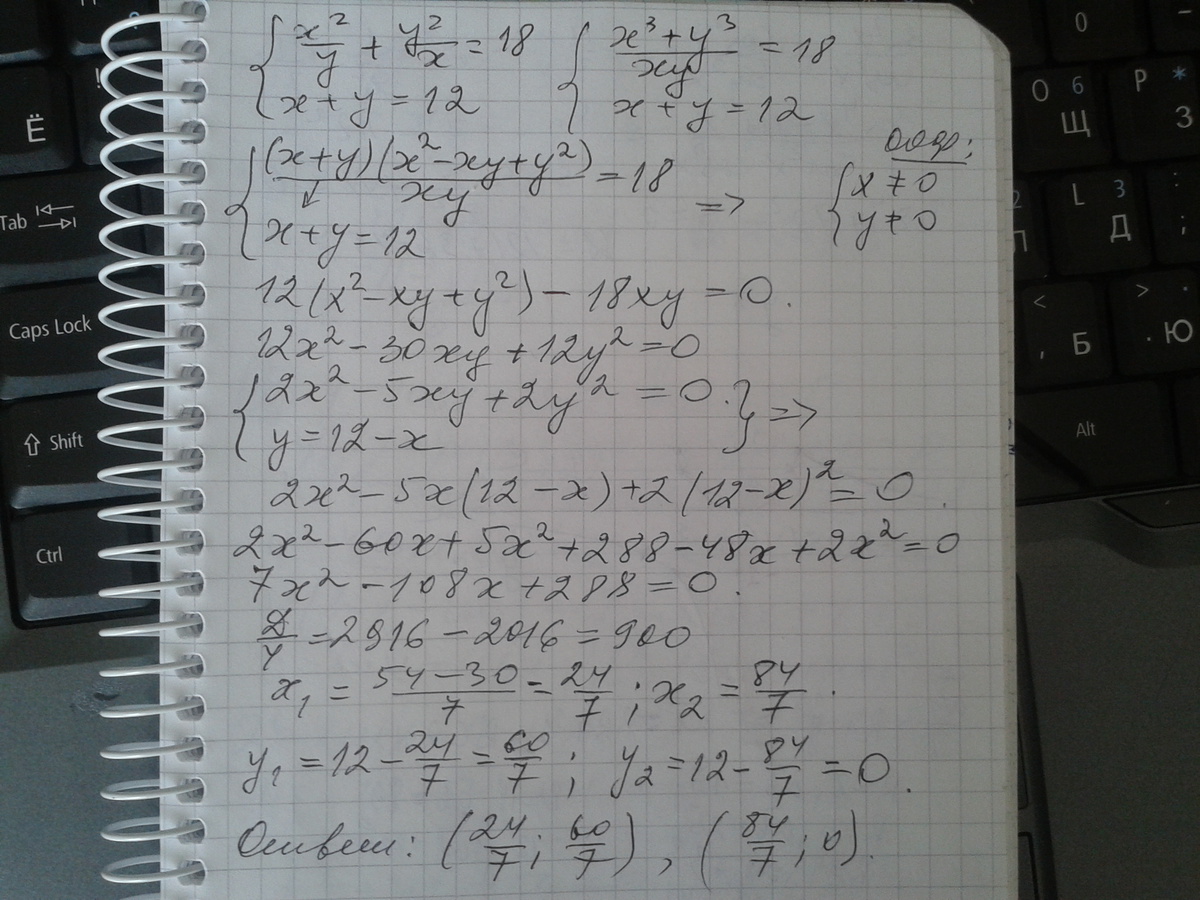 x²/y + y²/x = 18   (x³+y³)/(xy) = 18
x+y = 12   x+y = 12
((x+y)(x²-xy+y²))/(xy) = 18 =>
x+y = 12
ООФ:
x ≠ 0
y ≠ 0
12(x²-xy+y²) - 18xy = 0.
12x² - 30xy + 12y² = 0
{2x² - 5xy + 2y² = 0.} =>
y = 12 - x
2x² - 5x(12-x) + 2(12-x)² = 0.
2x² - 60x + 5x² + 288 - 48x + 2x² = 0
7x² - 108x + 288 = 0.
D/4 = 2916 - 2016 = 900
x₁ = (54-30)/7 = 24/7 ; x₂ = 84/7.
y₁ = 12 - 24/7 = 60/7 ; y₂ = 12 - 84/7 = 0.
Ответ: (24/7; 60/7), (84/7; 0).
Ё
Tab
Caps Lock
Shift
Ctrl
0
-
О 6 Щ
P * З
L 3 Д
: ;
2 П
< , Б
> . Ю
Alt